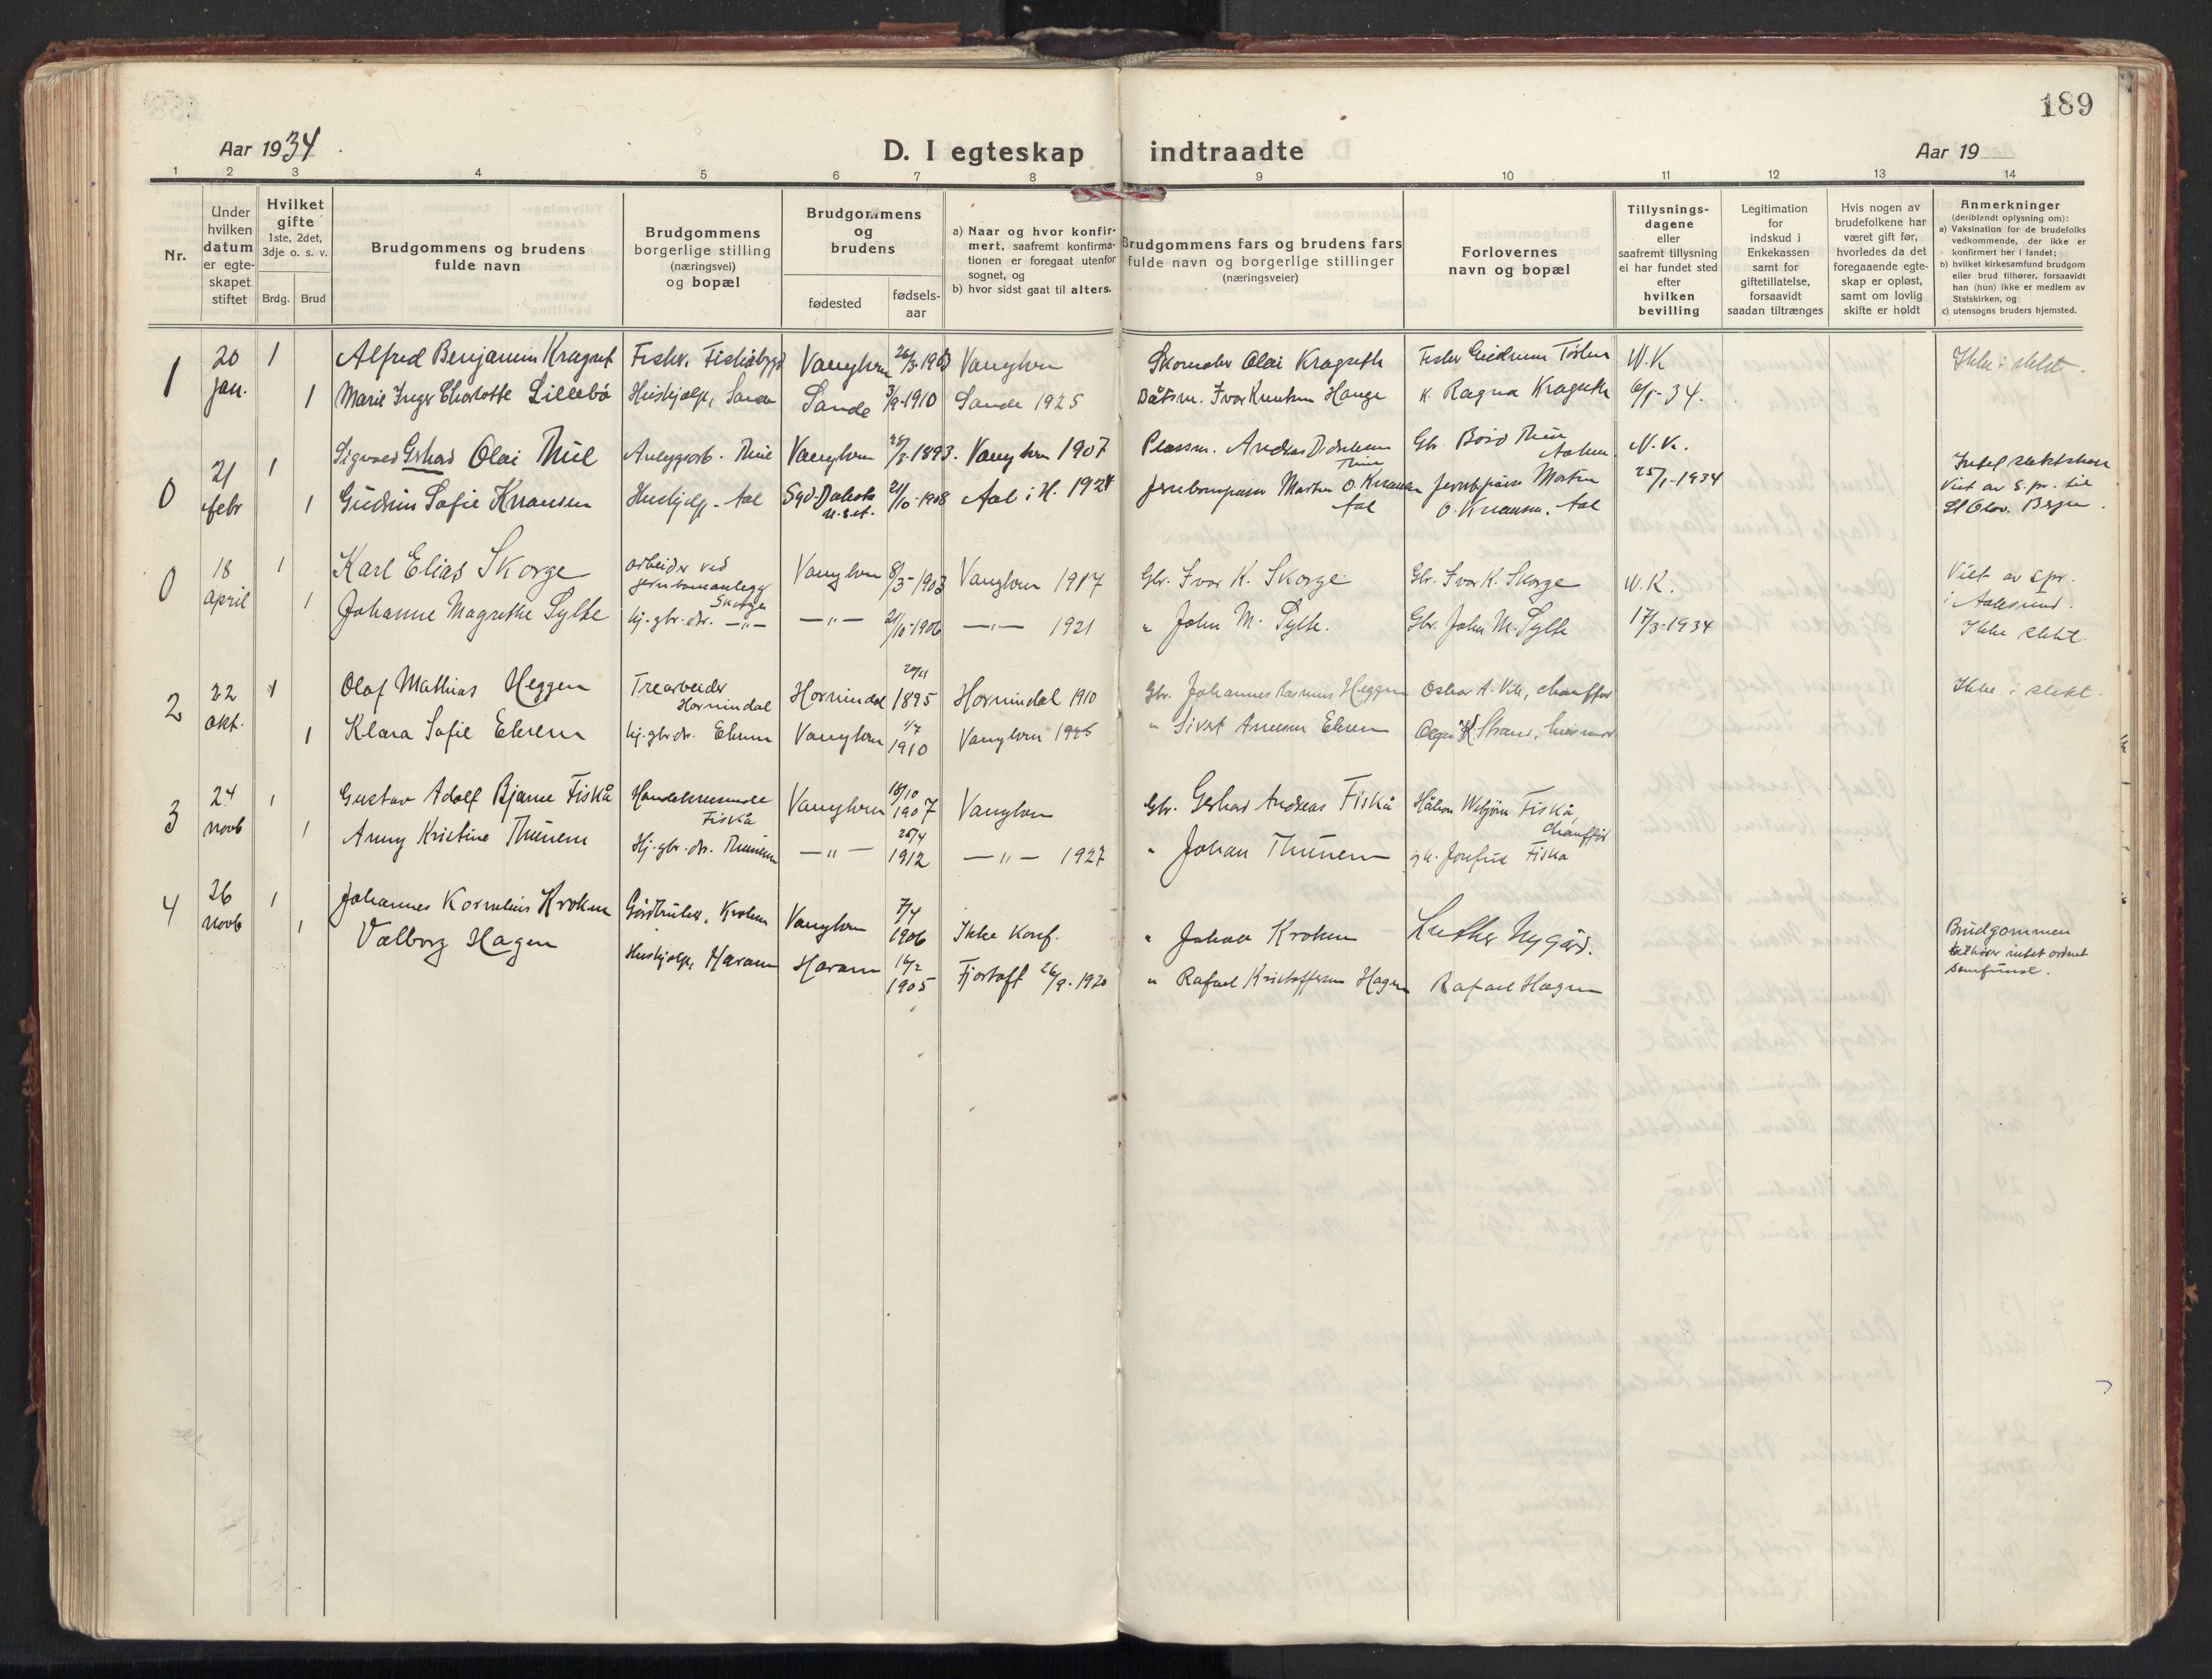 189
Aar 1934
D. I egteskap indtraadte
Aar 19
1 2 3 4 5 6 7 8 9 10 11 12 13 14
Nr.
Under
hvilken
datum
er egte-
skapet
stiftet
Hvilket
gifte
1ste, 2det,
3dje o. s. v.
Brdg. Brud
Brudgommens og brudens
fulde navn
Brudgommens
borgerlige stilling
(næringsvei)
og bopæl
Brudgommens
og
brudens
fødested
fødsels-
aar
a) Naar og hvor konfir-
mert, saafremt konfirma-
tionen er foregaat utenfor
sognet, og
b) hvor sidst gaat til alters.
Brudgommens fars og brudens fars
fulde navn og borgerlige stillinger
(næringsveier)
Forlovernes
navn og bopæl
Tillysnings-
dagene
eller
saafremt tillysning
ei har fundet sted
efter
hvilken
bevilling
Legitimation
for
indskud i
Enkekassen
samt for
giftetillatelse,
forsaavidt
saadan tiltrænges
Hvis nogen av
brudefolkene har
været gift før,
hvorledes da det
foregaaende egte-
skap er opløst,
samt om lovlig
skifte er holdt
Anmerkninger
(deriblandt oplysning om):
a) Vaksination for de brudefolks
vedkommende, der ikke er
konfirmert her i landet;
b) hvilket kirkesamfund brudgom
eller brud tilhører, forsaavidt
han (hun) ikke er medlem av
Statskirken, og
c) utensogns bruders hjemsted.
1 20 jan. 1 Alfred Benjamin Kragset Fisker, Vanylven 26/3-1903 Vanylven Skomaker Olai Kragseth Fisker V.K
1 Marie Inger Charlotte Lillebö Hushjelp, Sande Sande 3/9-1910 Sande 1925 Ivar Knutsen Hauge K. Ragna Kragseth 6/1-34. Ikke i slekt.
0 21 febr 1 Sigvald Gerhard Olai Thue Anleggsarb. Thue Vanylven 1893. Vanylven 1907 Plassm. Andreas Didriksen Thue Gbr. V.K.
1 Gudrun Sofie Knausen Hushjelp. Aal Syd-Dakota U.S.A. 21/10-1908 Aal i H. 1924 Martin O. Knausen Aal Martin O. Knausen. Aal 25/1-1934
Viet av s.pr. til
St Olav. Bergen.
0 18 April 1 Karl Elias Skorge arbeider ved jernbaneanlegg Skorge Vanylven 8/5-1903 Vanylven 1917 Gbr. Ivar K. Skorge Gbr. Ivar K. Skorge V.K. Viet av spr. i Aalesund.
1 Johanne Magrethe Sylte hj. gbr. dtr. —"— —"— 21/10-1906 —"— 1921 " John M. Sylte. Gbr. John M. Sylte 17/3-1934 Ikke slekt.
2 22 okt. 1 Olaf Mathias Heggen Trearbeider Hornindal Hornindal 20/11 1895 Hornindal 1910 Gbr. Johannes Rasmus Heggen Oskar A. Vik, chauffør Ikke i slekt.
1 Klara Sofie Ekrem hj. gbr. dr. Ekrem Vanylven 1/7 1910 Vanylven " Sivert Ekrem
3 24 novb 1 Gustav Adolf Bjarne Fiskå Fiskå Vanylven 18/10 1907 Vanylven Gbr. Gerhard Andreas Fiskå Håkon Fiskå, Chauffør
1 Anny Kristine Thunem Hj. gbr. dtr. Thunem —"— 25/4 1912 —"— 1927 " Johan Thunem Fiskå
4 26 novb 1 Johannes Kornelius Kroken Gårdbruker, Kroken Vanylven 7/4 1906 Ikke konf. " Johan Kroken Luther Nygård. Brudgommen
1 Valborg Hagen Hushjelp, Haram Haram 16/2 1905 Fjortoft 26/9-1920 " Rafael Kristoffersen Hagen Rafael Hagen
tilhører intet ordnet
samfund.